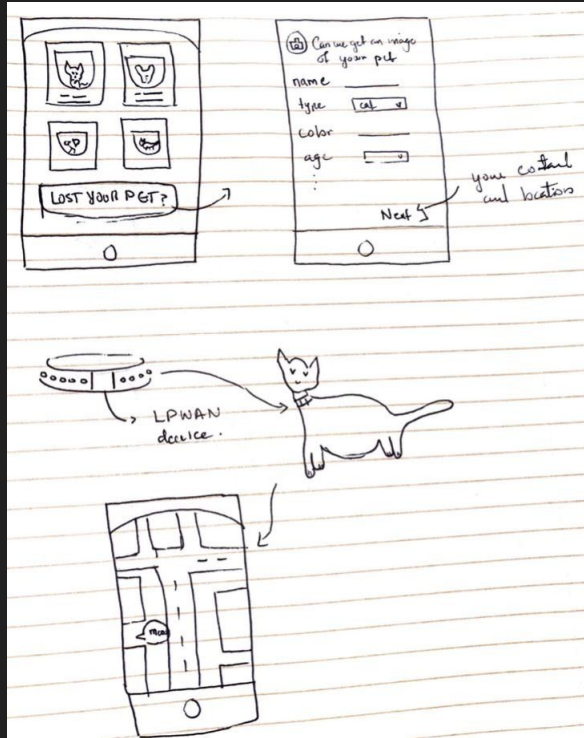 LOST YOUR PET?
Can we get an image
of your pet
name
type cat
color
age
Next
your contact
and location
LPWAN
device.
meow